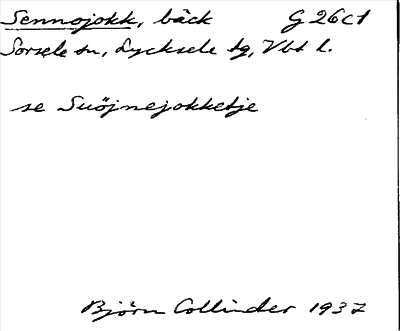 Sennojokk, bäck G 26c1
Sorsele sn, Lycksele tg, Vbt l.
se Suöjnejokketje
Björn Collinder 1937